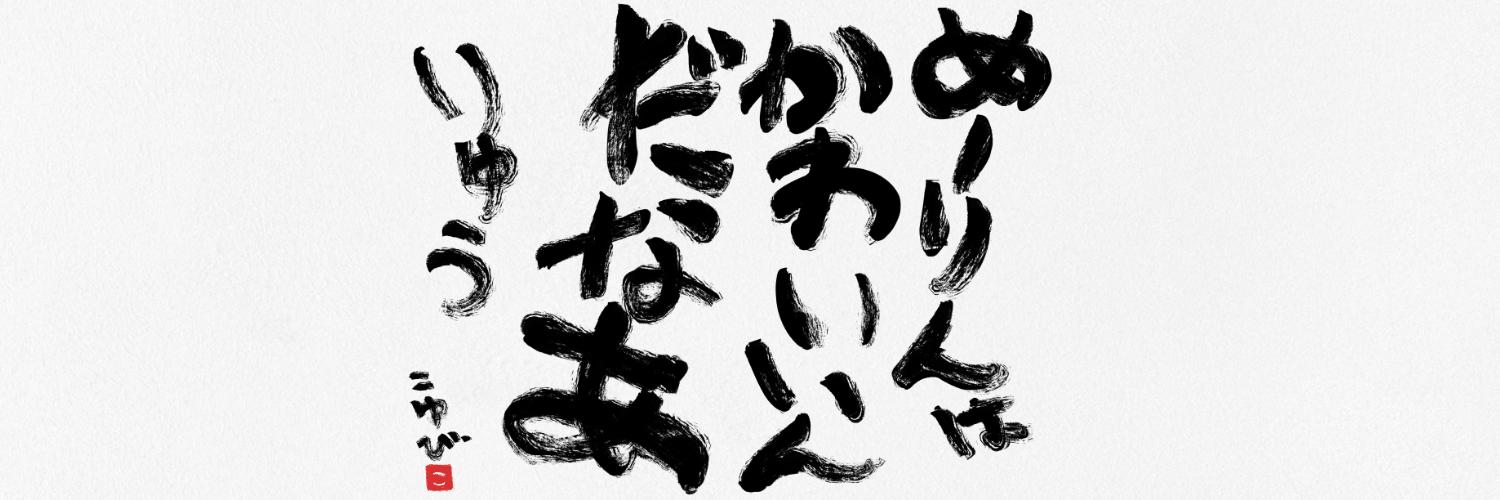 めーりんは
かわいいん
だなあ
りゅう
こゆび
こ